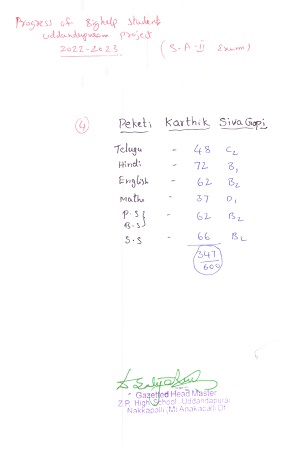 Progress of Bighelp student
Uddandapuram project
2022-2023 (S-A-II Exam)
4 Peketi Karthik Siva Gopi
Telugu - 48 C2
Hindi - 72 B1
English - 62 B2
Maths - 37 D1
P.S
B.S } - 62 B2
S.S - 66 B2
347
600
Gazetted Head Master
Z.P. High School Uddandapuram
Nakkapalli (M) Anakapalli Dt